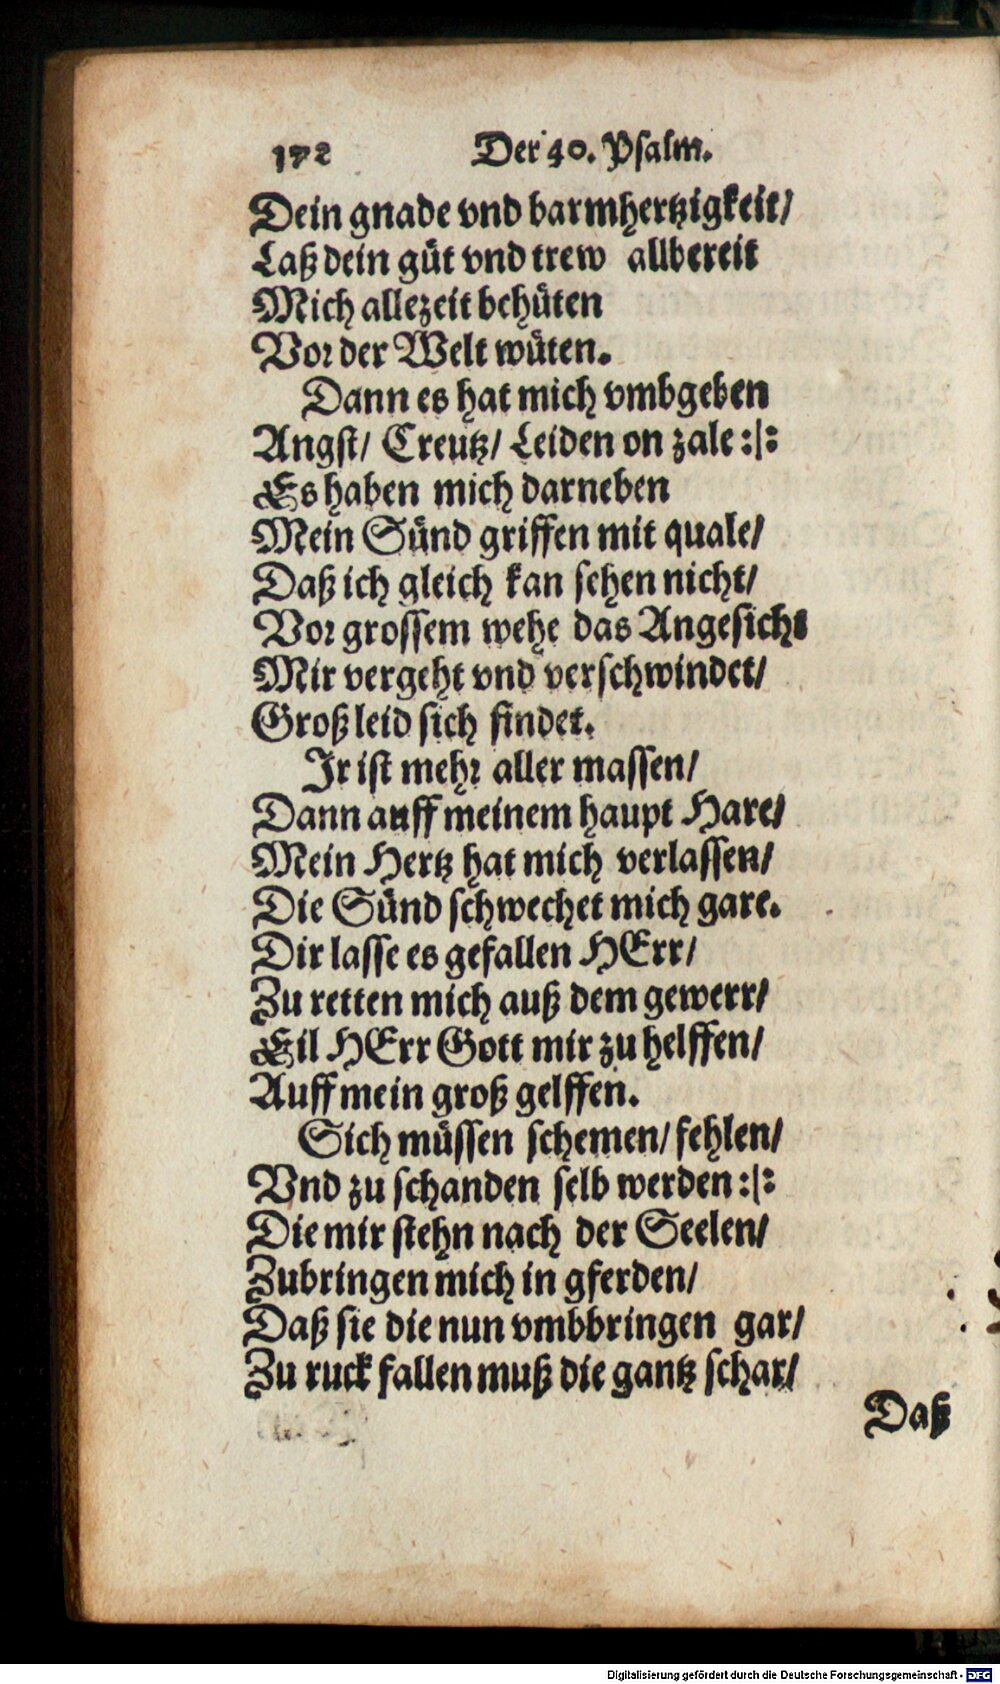 172 Der 40. Psalm.
Dein gnade vnd barmhertzigkeit/
Laß dein güt vnd trew allbereit
Mich allezeit behüten
Vor der Welt wüten.
Dann es hat mich vmbgeben
Angst/ Creutz/ Leiden on zale :|:
Es haben mich darneben
Mein Sünd griffen mit quale/
Daß ich gleich kan sehen nicht/
Vor grossem wehe das Angesicht
Mir vergeht vnd verschwindet/
Groß leid sich findet.
Jr ist mehr aller massen/
Dann auff meinem haupt Hare/
Mein Hertz hat mich verlassen/
Die Sünd schwechet mich gare.
Dir lasse es gefallen HErr/
Zu retten mich auß dem gewerr/
Eil HErr Gott mir zu helffen/
Auff mein groß gelffen.
Sich müssen schemen/ fehlen/
Vnd zu schanden selb werden :|:
Die mir stehn nach der Seelen/
Zubringen mich in gferden/
Daß sie die nun vmbbringen gar/
Zu ruck fallen muß die gantz schar/
Daß
Digitalisierung gefördert durch die Deutsche Forschungsgemeinschaft - DFG